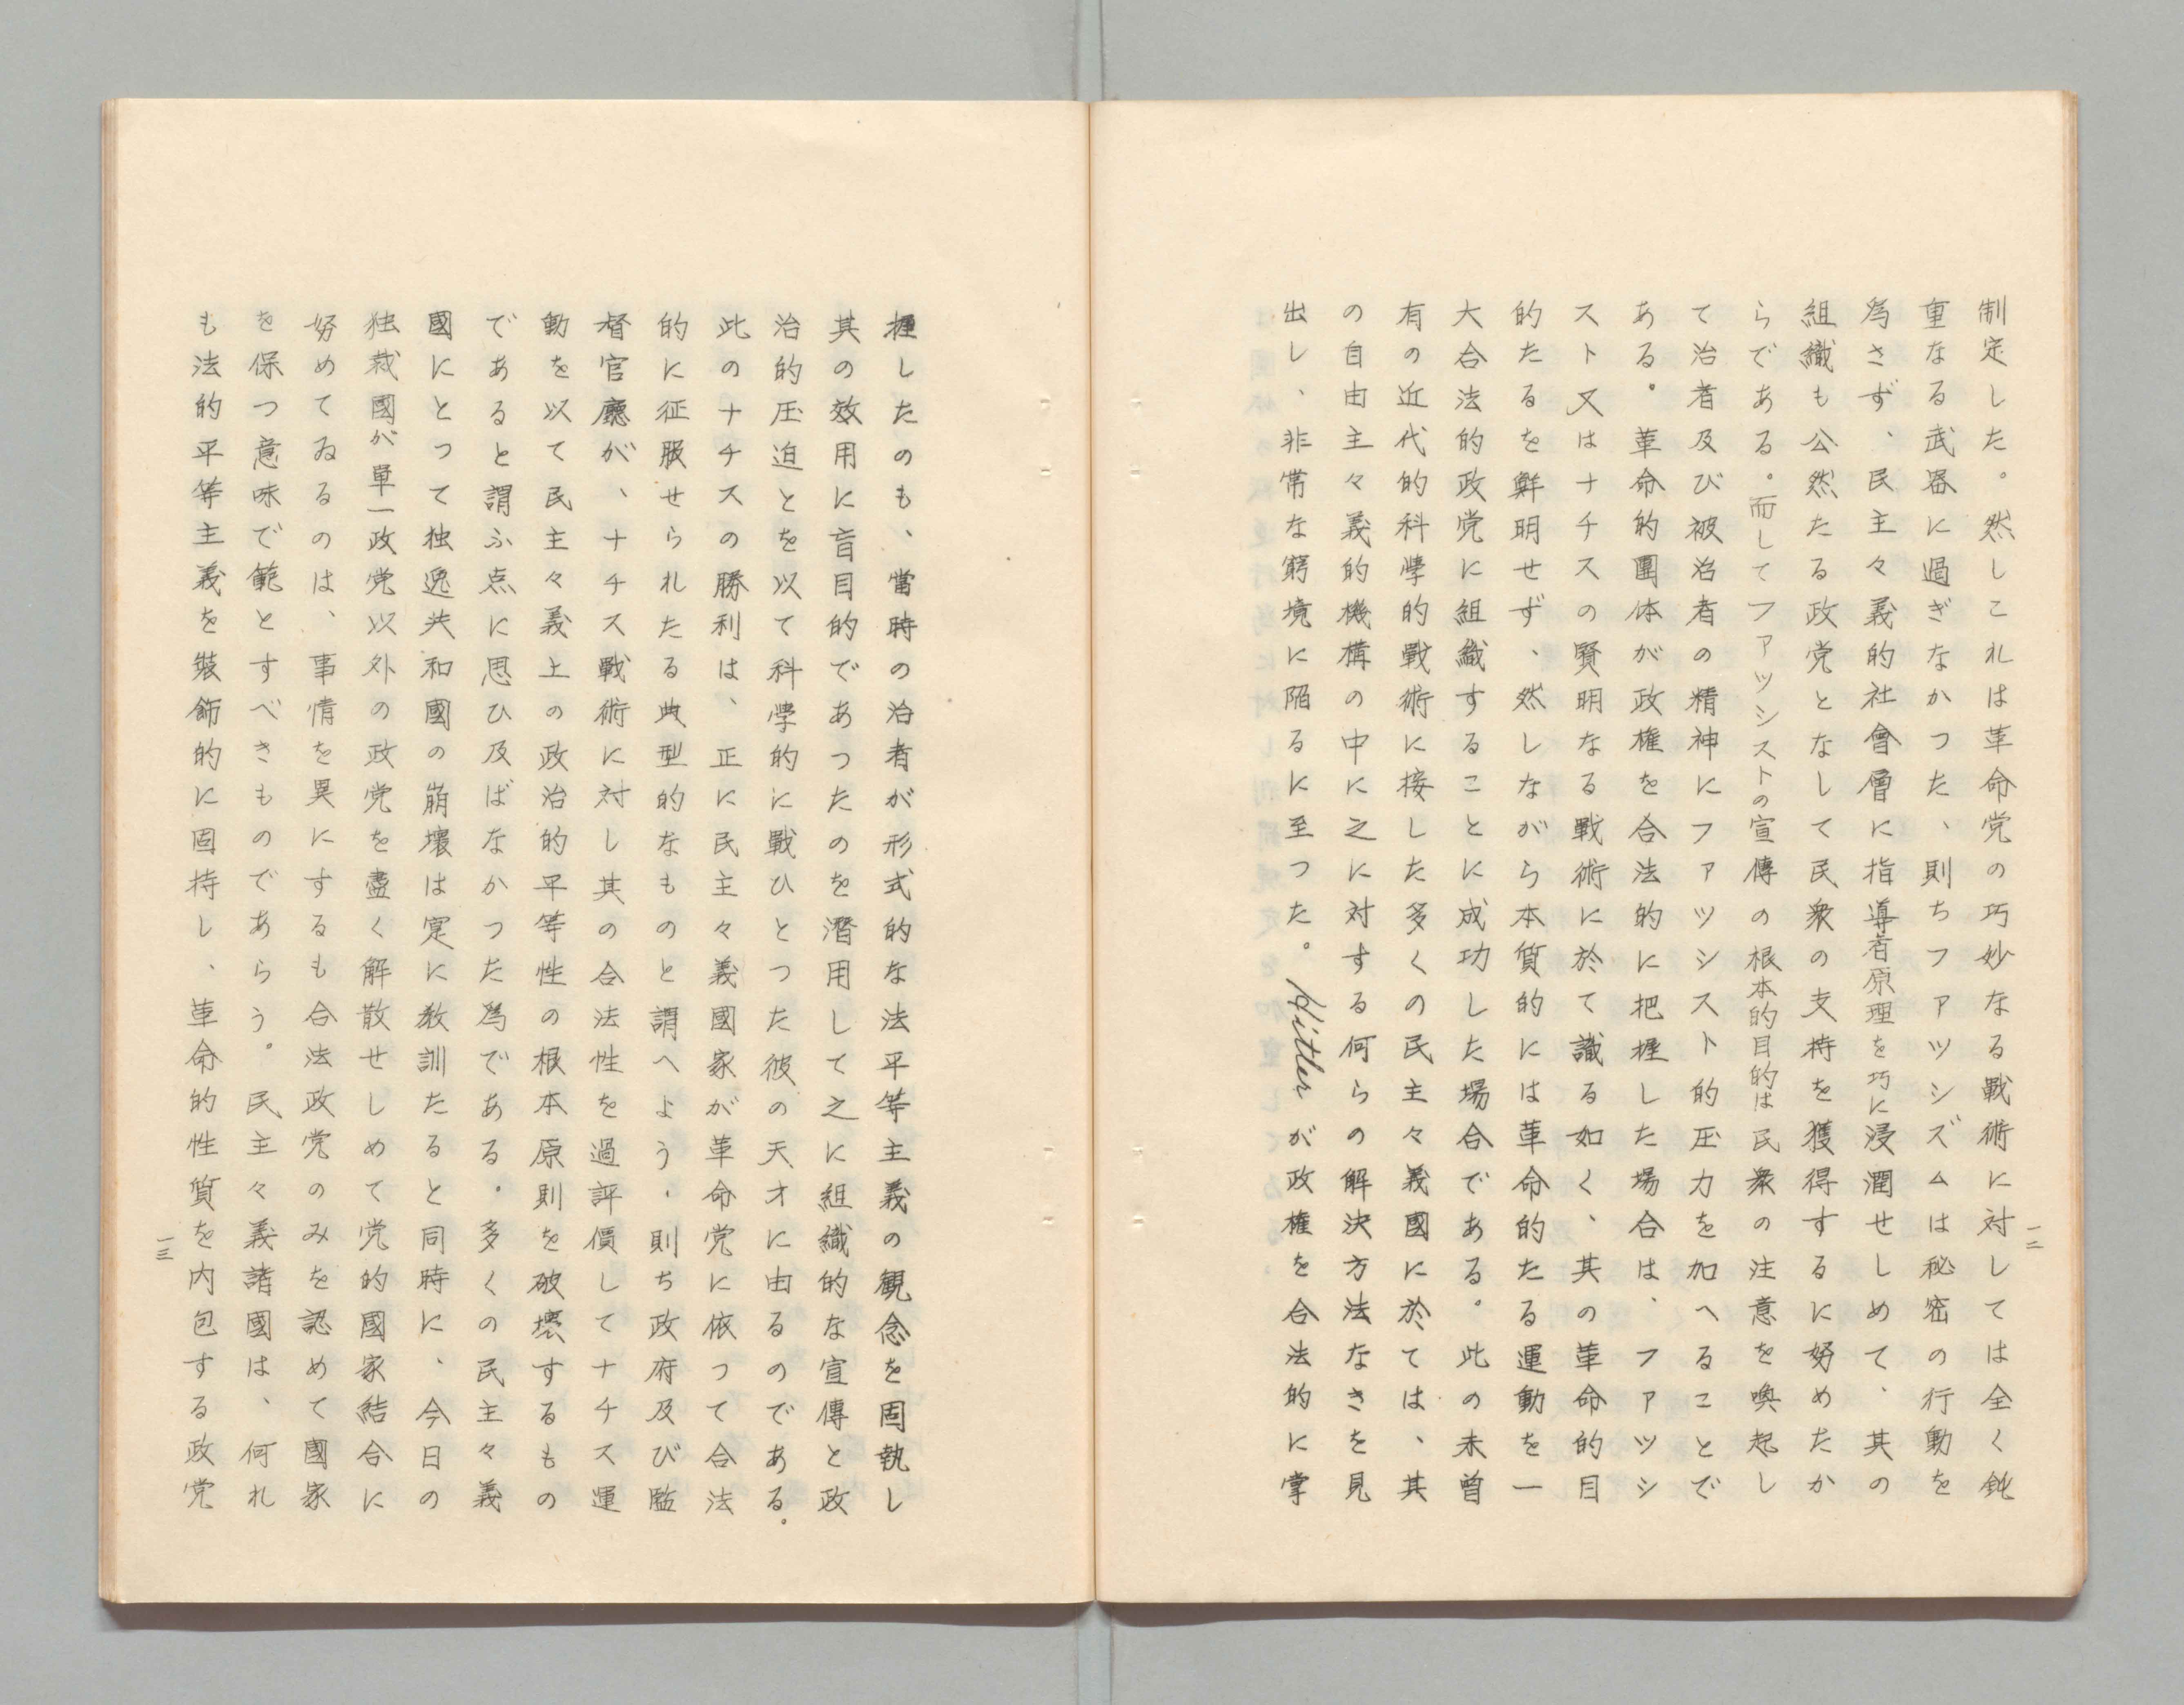 制定した。然しこれは革命党の巧妙なる戰術に対しては全く鈍
重なる武器に過ぎなかつた、則ちファツシズムは秘密の行動を
爲さず、民主々義的社會層に指導者原理を巧に浸潤せしめて、其の
組織も公然たる政党となして民衆の支持を獲得するに努めたか
らである。而してファッシストの宣傳の根本的目的は民衆の注意を喚起し
て治者及び被治者の精神にファツシスト的圧力を加へることで
ある。革命的團体が政権を合法的に把握した場合は、ファツシ
スト又はナチスの賢明なる戰術に於て識る如く、其の革命的目
的たるを鮮明せず、然しながら本質的には革命的たる運動を一
大合法的政党に組織することに成功した場合である。此の未曽
有の近代的科學的戰術に接した多くの民主々義國に於ては、其
の自由主々義的機構の中に之に対する何らの解決方法なきを見
出し、非常な窮境に陥るに至つた。Hitlerが政権を合法的に掌
一二
握したのも、當時の治者が形式的な法平等主義の観念を固執し
其の效用に盲目的であつたのを潛用して之に組織的な宣傳と政
治的圧迫とを以て科學的に戰ひとつた彼の天才に由るのである。
此のナチスの勝利は、正に民主々義國家が革命党に依つて合法
的に征服せられたる典型的なものと謂へよう、則ち政府及び監
督官廳が、ナチス戰術に対し其の合法性を過評價してナチス運
動を以て民主々義上の政治的平等性の根本原則を破壊するもの
であると謂ふ点に思ひ及ばなかつた爲である。多くの民主々義
國にとつて独逸共和國の崩壊は寔に教訓たると同時に、今日の
独裁國が單一政党以外の政党を盡く解散せしめて党的國家結合に
努めてゐるのは、事情を異にするも合法政党のみを認めて國家
を保つ意味で範とすべきものであらう。民主々義諸國は、何れ
も法的平等主義を裝飾的に固持し、革命的性質を内包する政党
一三